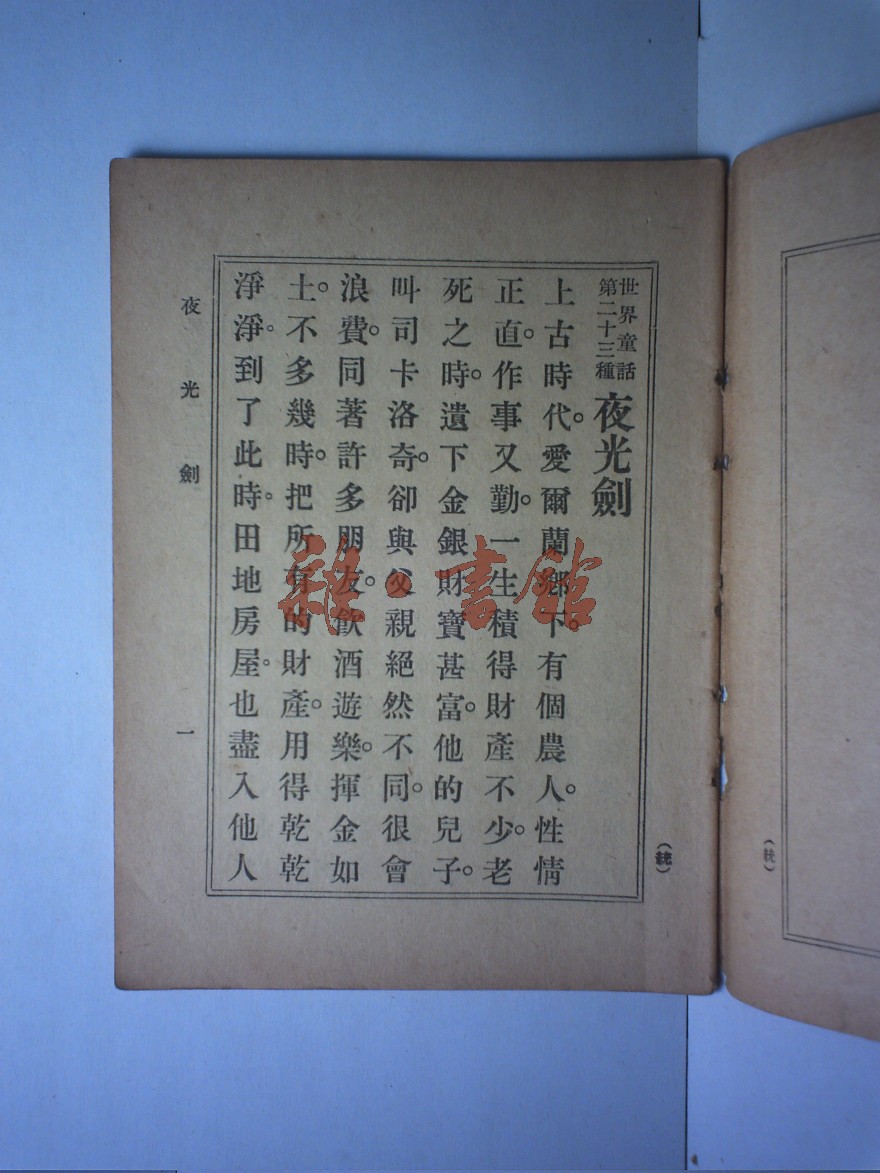 世界童話
第二十三種
夜光劍
上古時代。愛爾蘭鄉下。有個農人。性情
正直。作事又勤。一生積得財產不少。老
死之時。遺下金銀財寶甚富。他的兒子。
叫司卡洛奇。卻與父親絕然不同。很會
浪費。同著許多朋友。飲酒遊樂。揮金如
土。不多幾時。把所有的財產。用得乾乾
淨淨。到了此時。田地房屋。也盡入他人
夜光劍
一
(統)
(統)
雜·書館